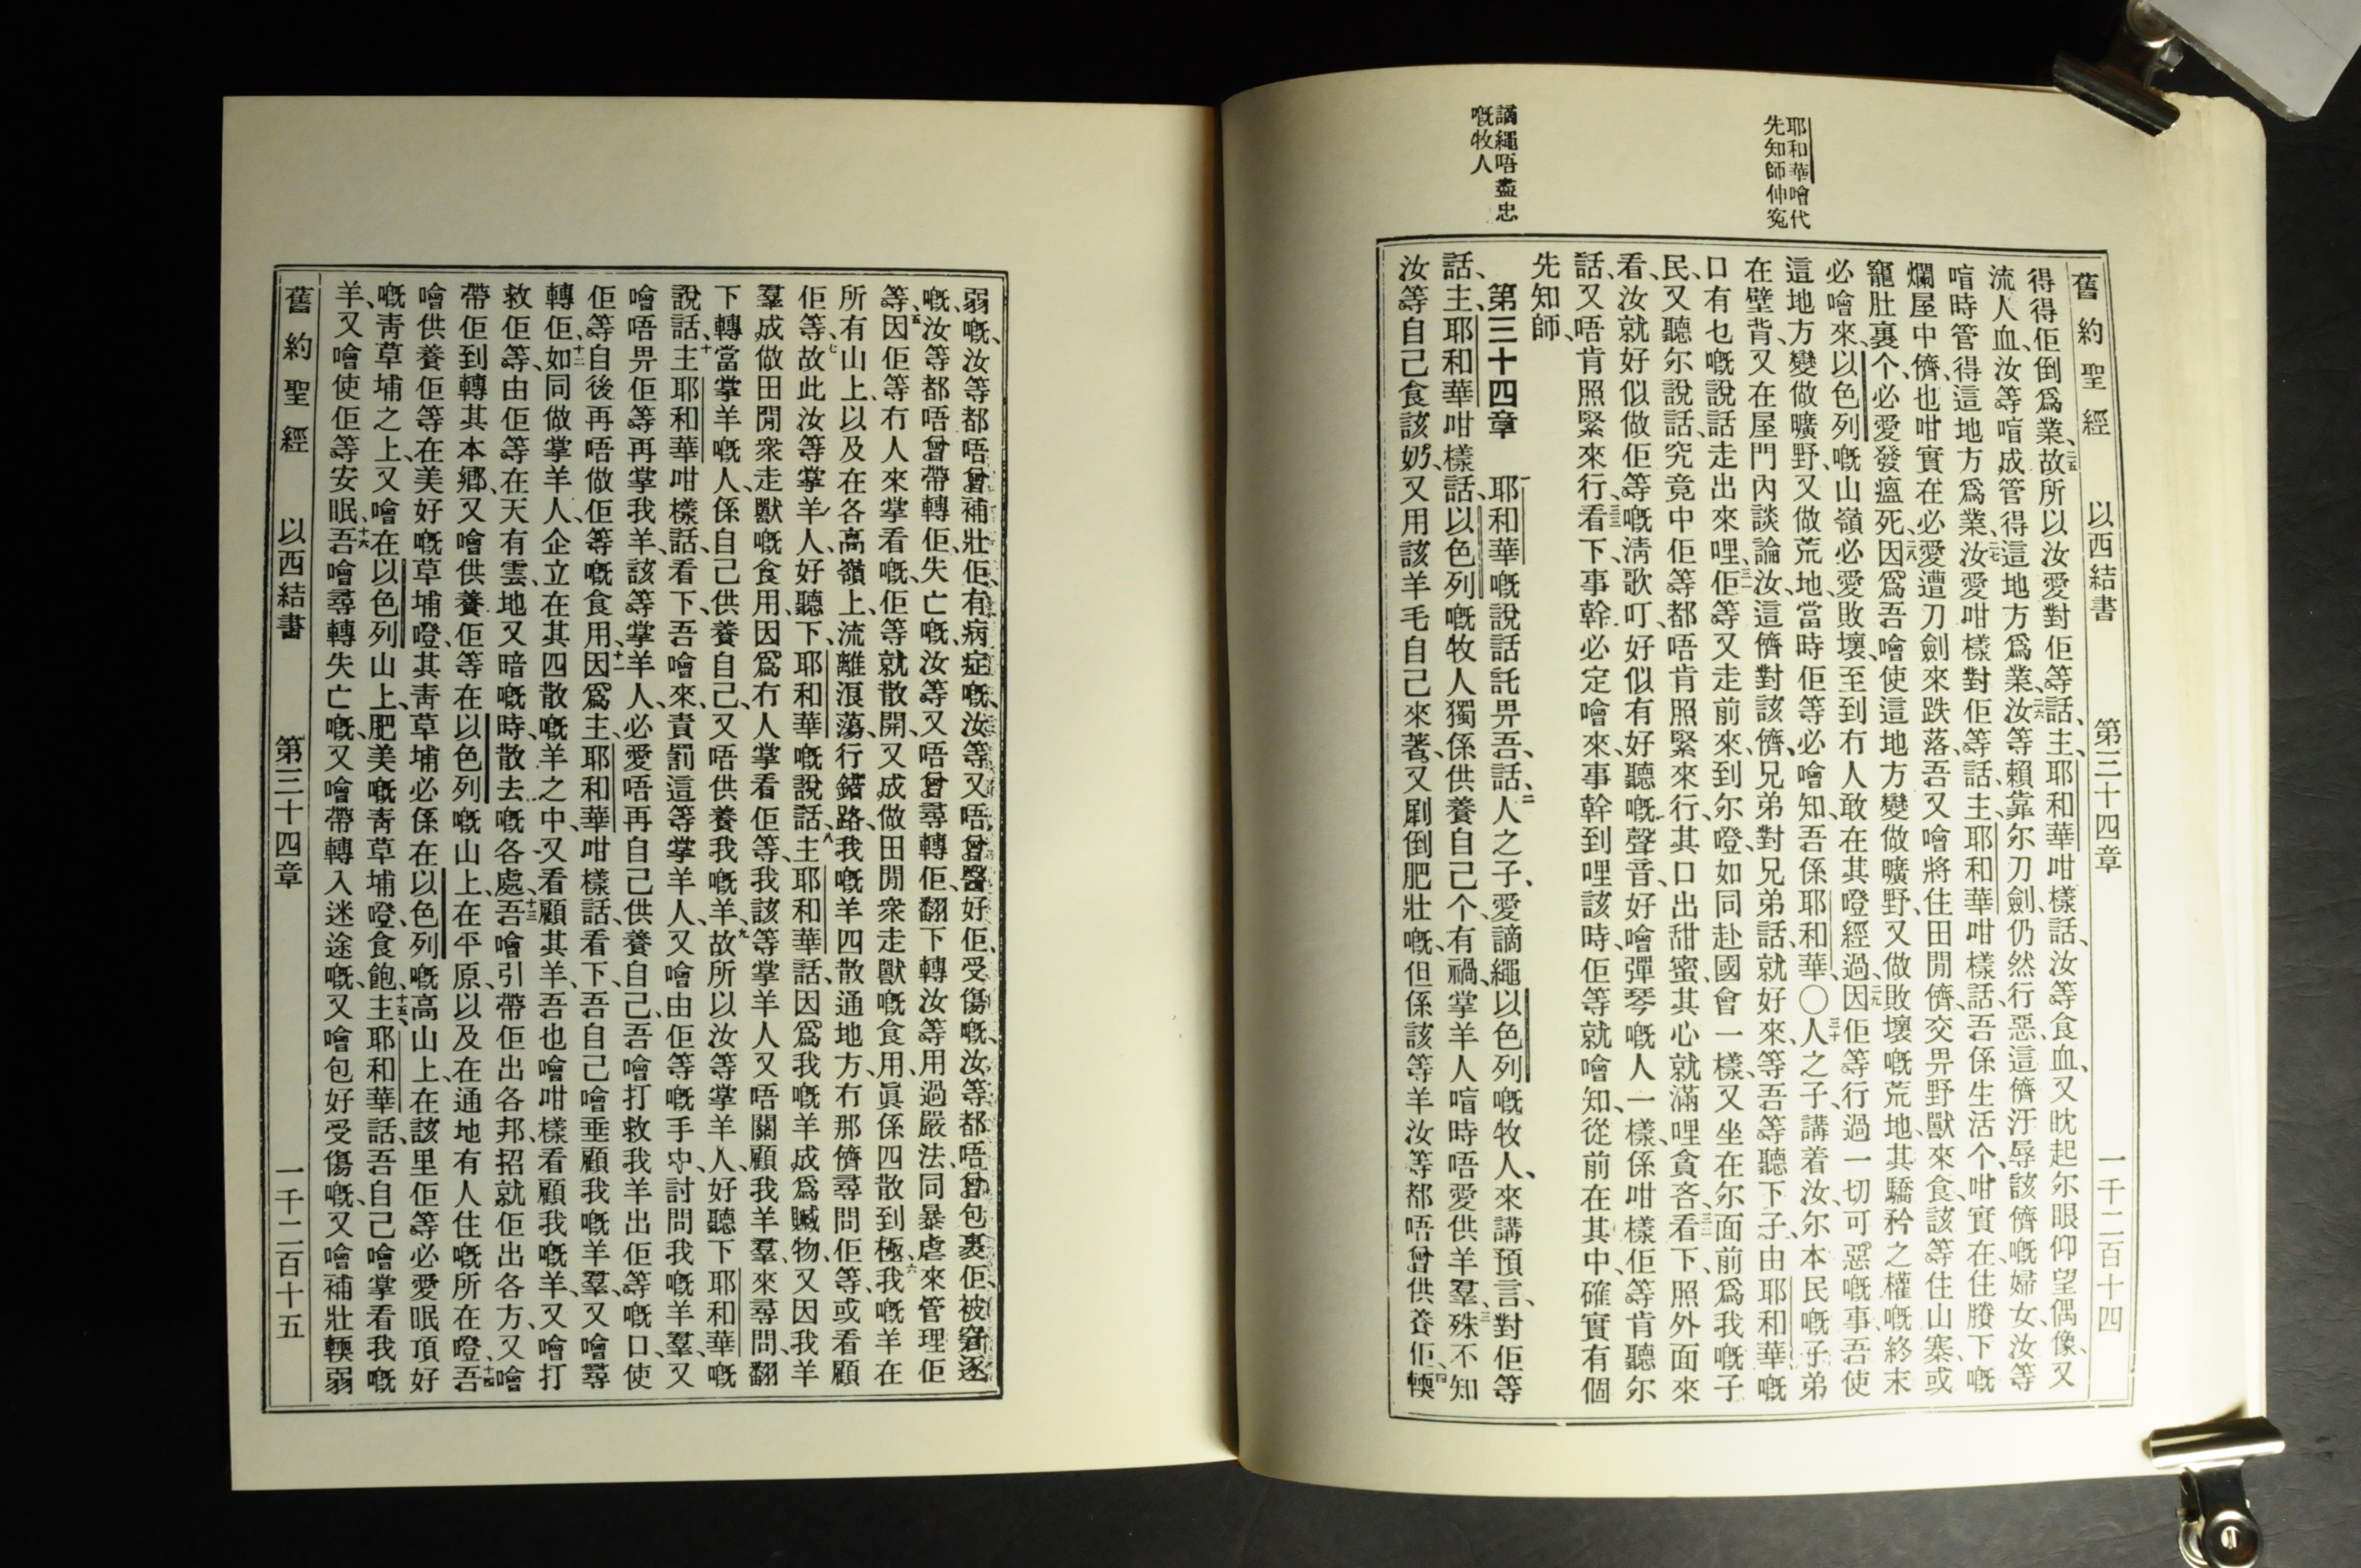 耶和華噲代
先知師伸寃
謫繩唔盡忠
嘅牧人
舊約聖經 以西結書 第三十四章 一千二百十四
得得佢倒爲業、二五故所以汝愛對佢等話、主耶和華咁樣話、汝等食血、又眈起尔眼仰望偶像、又
流人血、汝等喑成管得這地方爲業、二六汝等賴靠尔刀劍、仍然行惡、這儕汙辱該儕嘅婦女、汝等
喑時管得這地方爲業、二七汝愛咁樣對佢等話、主耶和華咁樣話、吾係生活个、咁實在住賸下嘅
爛屋中儕、也咁實在必愛遭刀劍來跌落、吾又噲將住田閒儕、交畀野獸來食、該等住山寨或
窿肚裏个、必愛發瘟死、二八因爲吾噲使這地方變做曠野、又做敗壞嘅荒地、其驕矜之權嘅終末
必噲來、以色列嘅山嶺必愛敗壞、至到冇人敢在其嶝經過、二九因佢等行過一切可惡嘅事、吾使
這地方變做曠野、又做荒地、當時佢等必噲知、吾係耶和華、〇三十人之子、講着汝、尔本民嘅子弟
在壁背、又在屋門內談論汝、這儕對該儕、兄弟對兄弟話、就好來、等吾等聽下子、由耶和華嘅
口有也嘅說話走出來哩、三一佢等又走前來、到尔嶝、如同赴國會一樣、又坐在尔面前、爲我嘅子
民、又聽尔說話、究竟中佢等都唔肯照緊來行、其口出甜蜜、其心就滿哩貪吝、三二看下、照外面來
看、汝就好似做佢等嘅淸歌叮、好似有好聽嘅聲音、好噲彈琴嘅人一樣、係咁樣佢等肯聽尔
話、又唔肯照緊來行、三三看下、事幹必定噲來、事幹到哩該時、佢等就噲知、從前在其中、確實有個
先知師、
第三十四章 一耶和華嘅說話託畀吾、話、二人之子、愛謫繩以色列嘅牧人、來講預言、對佢等
話、主、耶和華咁樣話、以色列嘅牧人獨係供養自己个、有禍、掌羊人喑時唔愛供羊羣、三殊不知
汝等自己食該奶、又用該羊毛自己來著、又㓾倒肥壯嘅、但係該等羊汝等都唔曾供養佢、四輭
弱嘅、汝等都唔曾補壯佢、有病症嘅、汝等又唔曾醫好佢、受傷嘅、汝等都唔曾包裹佢、被窘逐
嘅、汝等都唔曾帶轉佢、失亡嘅、汝等又唔曾尋轉佢、翻下轉汝等用過嚴法、同暴虐來管理佢
等、五因佢等冇人來掌看嘅、佢等就散開、又成做田閒衆走獸嘅食用、眞係四散到極、六我嘅羊在
所有山上、以及在各高嶺上、流離浪蕩、行錯路、我嘅羊四散通地方、冇那儕尋問佢等、或看顧
佢等、七故此汝等掌羊人、好聽下、耶和華嘅說話、八主耶和華話、因爲我嘅羊成爲贓物、又因我羊
羣成做田閒衆走獸嘅食用、因爲冇人掌看佢等、我該等掌羊人又唔關顧我羊羣、來尋問、翻
下轉當掌羊嘅人、係自己供養自己、又唔供養我嘅羊、九故所以汝等掌羊人、好聽下耶和華嘅
說話、十主耶和華咁樣話、看下、吾噲來責罰這等掌羊人、又噲由佢等嘅手中、討問我嘅羊羣、又
噲唔畀佢等再掌我羊、該等掌羊人、必愛唔再自己供養自己、吾噲打救我羊出佢等嘅口、使
佢等自後再唔做佢等嘅食用、十一因爲主耶和華咁樣話、看下、吾自己噲垂顧我嘅羊羣、又噲尋
轉佢、十二如同做掌羊人、企立在其四散嘅羊之中、又看顧其羊、吾也噲咁樣看顧我嘅羊、又噲打
救佢等、由佢等在天有雲、地又暗嘅時、散去嘅各處、十三吾噲引帶佢出各邦、招就佢出各方、又噲
帶佢到轉其本鄉、又噲供養佢等在以色列嘅山上、在平原、以及在通地有人住嘅所在嶝、十四吾
噲供養佢等、在美好嘅草埔嶝、其靑草埔必係在以色列嘅高山上、在該里佢等必愛眠頂好
嘅靑草埔之上、又噲在以色列山上、肥美嘅靑草埔嶝食飽、十五主耶和華話、吾自己噲掌看我嘅
羊、又噲使佢等安眠、十六吾噲尋轉失亡嘅、又噲帶轉入迷途嘅、又噲包好受傷嘅、又噲補壯輭弱
舊約聖經 以西結書 第三十四章 一千二百十五